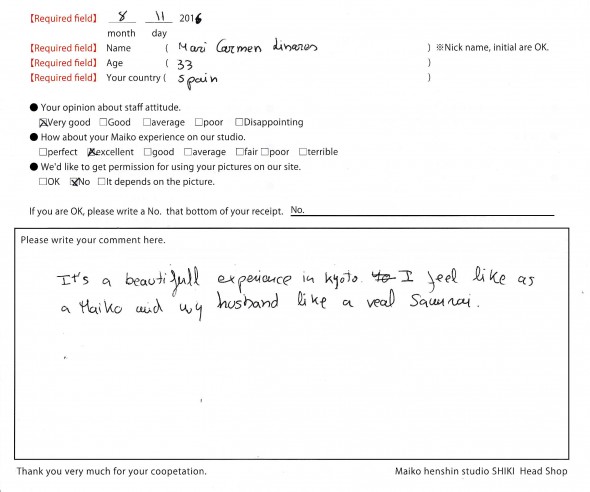 【Required field】 8 11 2016
month day
【Required field】 Name ( Mari Carmen Linares ) ※Nick name, initial are OK.
【Required field】 Age ( 33 )
【Required field】 Your country ( Spain )
● Your opinion about staff attitude.
☒Very good □Good □average □poor □Disappointing
● How about your Maiko experience on our studio.
□perfect ☒excellent □good □average □fair □poor □terrible
● We'd like to get permission for using your pictures on our site.
□OK ☒No □It depends on the picture.
If you are OK, please write a No. that bottom of your receipt. No.
Please write your comment here.
It's a beautifull experience in Kyoto. I feel like as
a Maiko and my husband like a real Samurai.
Thank you very much for your coopetation. Maiko henshin studio SHIKI Head Shop